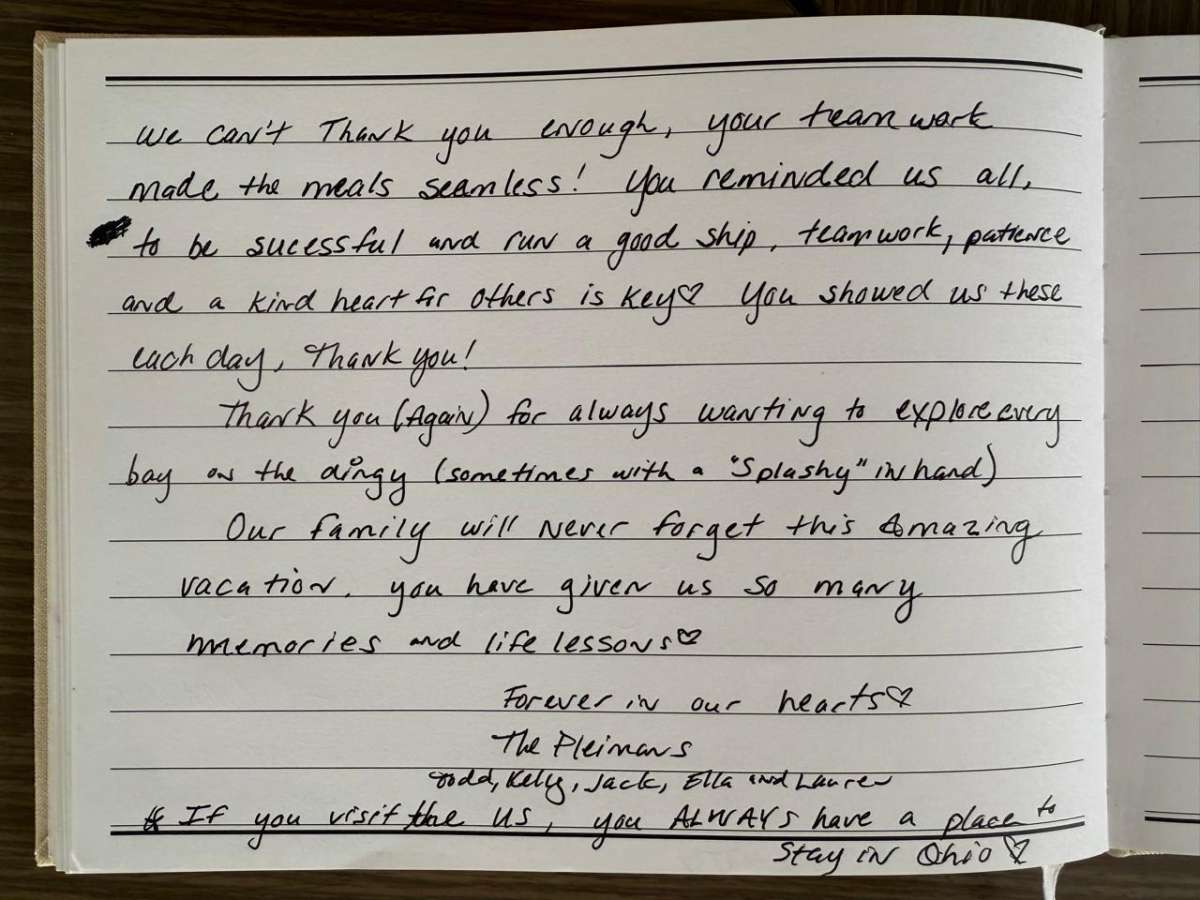 We can't Thank you enough, your team work
made the meals seamless! You reminded us all,
to be sucessful and run a good ship, teamwork, patience
and a kind heart for others is key♡ You showed us these
each day, Thank you!
Thank you (Again) for always wanting to explore every
bay on the dingy (sometimes with a "Splashy" in hand)
Our family will never forget this Amazing
vacation. you have given us so many
memories and life lessons♡
Forever in our hearts♡
The Pleimans
Todd, Kelly, Jack, Ella and Lauren
* If you visit the US, you ALWAYS have a place to
Stay in Ohio ♡